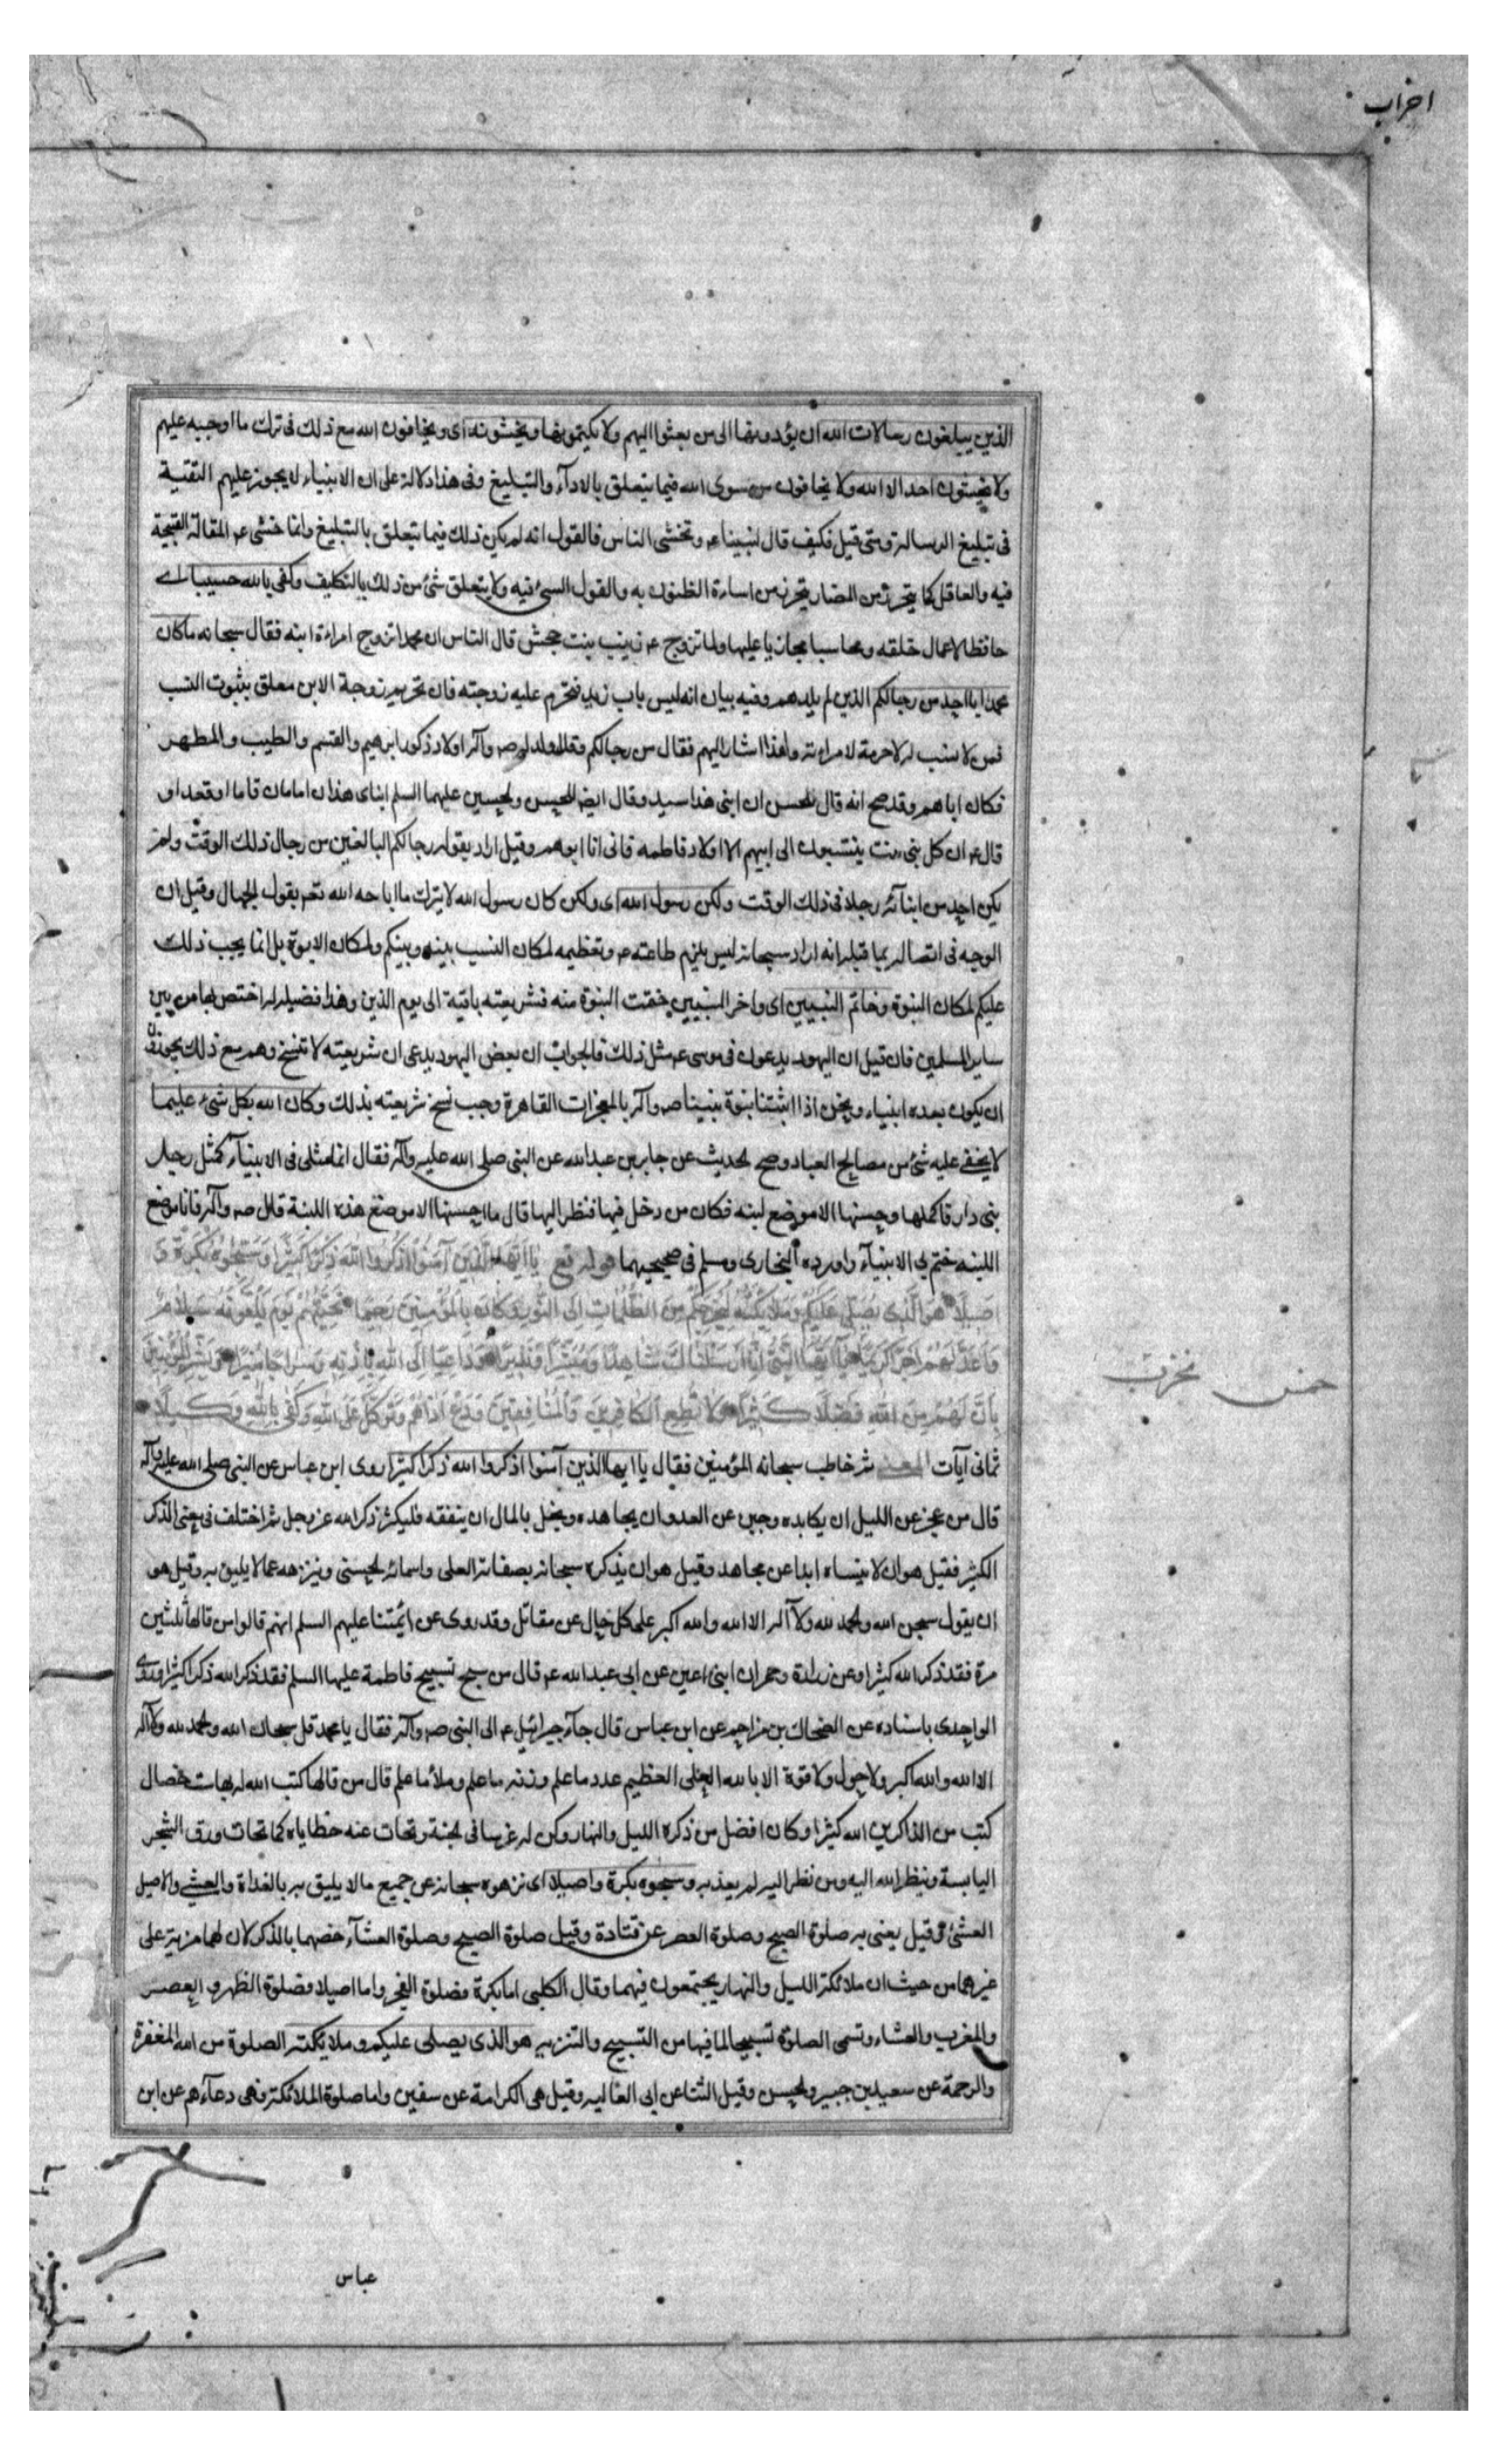 احزاب
الذين يبلغون رسالات الله ان يؤدونها الى من بعثوا اليهم ولا يكتمونها ويخشونه اى ويخافون الله مع ذلك فى ترك ما اوجبه عليهم
ولا يخشون احدا الا الله ولا يخافون من سوى الله فيما يتعلق بالادآء والتبليغ وفى هذا دلالة على ان الانبياء لا يجوز عليهم التقية
فى تبليغ الرسالة ومتى قيل فكيف قال لنبينا عم وتخشى الناس فالقول انه لم يكن ذلك فيما يتعلق بالتبليغ وانما خشى عم المقالة القبيحة
فيه والعاقل كما يتحرز من المضار يتحرز من اساءة الظنون به والقول السئ فيه ولا يتعلق شئ من ذلك بالتكليف وكفى بالله حسيبا اے
حافظا لاعمال خلقه ومحاسبا مجازيا عليها ولما تزوج عم زينب بنت جحش قال الناس ان محمدا تزوج امراءة ابنه فقال سبحانه ما كان
محمد ابا احد من رجالكم الذين لم يلدهم وفيه بيان انه ليس باب زيد فتحرم عليه زوجته فان تحريم زوجة الابن معلق بثبوت النسب
فمن لا نسب له لا حرمة لامراءته ولهذا اشار اليهم فقال من رجالكم وقد ولد له صه وآله اولاد ذكور ابرهيم والقسم والطيب والمطهر
فكان اباهم وقد صح انه قال للحسن ان ابنى هذا سيد وقال ايضا للحسن والحسين عليهما السلم ابناى هذان امامان قاما او قعدا و
قال عم ان كل بنى بنت ينتسبون الى ابيهم الا اولاد فاطمه فانى انا ابوهم وقيل اراد بقوله رجالكم البالغين من رجال ذلك الوقت ولم
يكن احد من ابنآئه رجلا فى ذلك الوقت ولكن رسول الله اى ولكن كان رسول الله لا يترك ما اباحه الله تعم بقول الجهال وقيل ان
الوجه فى اتصاله بما قبله انه اراد سبحانه ليس يلزم طاعته عم وتعظيمه لمكان النسب بينه وبينكم ولمكان الابوة بل انما يجب ذلك
عليكم لمكان النبوة وخاتم النبيين اى واخر النبيين ختمت النبوة منه فشريعته باقية الى يوم الدين وهذا فضيلة له اختص بها من بين
ساير المسلمين فان قيل ان اليهود يدعون فى موسى عم مثل ذلك فالجواب ان بعض اليهود يدعى ان شريعته لا تنسخ وهم مع ذلك يجوزون
ان يكون بعده انبياء ونحن اذا اثبتنا نبوة نبينا صه وآله بالمعجزات القاهرة وجب نسخ شريعته بذلك وكان الله بكل شىء عليما
لا يخفى عليه شئ من مصالح العباد وصح الحديث عن جابر بن عبدالله عن النبى صلى الله عليه وآله فقال انما مثلى فى الانبيآء كمثل رجل
بنى دار فاكملها وحسنها الا موضع لبنه فكان من دخل فيها فنظر اليها قال ما احسنها الا موضع هذه اللبنة قال صه وآله فانا موضع
اللبنه ختم بى الانبيآء واورده البخارى ومسلم فى صحيحيهما قوله تع يا ايها الذين آمنوا اذكروا الله ذكرا كثيرا وسبحوه بكرة و
اصيلا هو الذى يصلى عليكم وملائكته ليخرجكم من الظلمات الى النور وكان بالمؤمنين رحيما تحيتهم يوم يلقونه سلام
واعد لهم اجرا كريما يا ايها النبى انا ارسلناك شاهدا ومبشرا ونذيرا وداعيا الى الله باذنه وسراجا منيرا وبشر المؤمنين
بان لهم من الله فضلا كبيرا ولا تطع الكافرين والمنافقين ودع اذاهم وتوكل على الله وكفى بالله وكيلا
ثمانى آيات ثم خاطب سبحانه المؤمنين فقال يا ايها الذين آمنوا اذكروا الله ذكرا كثيرا روى ابن عباس عن النبى صلى الله عليه وآله
قال من عجز عن الليل ان يكابده وجبن عن العدو ان يجاهده وبخل بالمال ان ينفقه فليكثر ذكر الله عز وجل ثم اختلف فى معنى الذكر
الكثير فقيل هو ان لا ينساه ابدا عن مجاهد وقيل هو ان يذكره سبحانه بصفاته العلى واسمائه الحسنى وينزهه عما لا يليق به وقيل هو
ان يقول سبحن الله والحمد لله ولا آله الا الله والله اكبر على كل حال عن مقاتل وقد روى عن ائمتنا عليهم السلم انهم قالوا من قالها ثلثين
مرة فقد ذكر الله كثيرا وعن زرارة وحمران ابنى اعين عن ابى عبدالله عم قال من سبح تسبيح فاطمة عليها السلم فقد ذكر الله ذكرا كثيرا وروى
الواحدى باسناده عن الضحاك بن مزاحم عن ابن عباس قال جآء جبرائيل عم الى النبى صه وآله فقال يا محمد قل سبحان الله والحمد لله ولا آله
الا الله والله اكبر ولا حول ولا قوة الا بالله العلى العظيم عدد ما علم وزنه ما علم وملأ ما علم قال من قالها كتب الله له بها ست خصال
كتب من الذاكرين الله كثيرا وكان افضل من ذكره الليل والنهار وكن له غرسا فى الجنة وتحات عنه خطاياه كما تحات ورق الشجر
اليابسة وينظر الله اليه ومن نظر اليه لم يعذبه وسبحوه بكرة واصيلا اى نزهوه سبحانه عن جميع ما لا يليق به بالغداة والعشي والاصيل
العشى وقيل يعنى به صلوة الصبح وصلوة العصر عن قتادة وقيل صلوة الصبح وصلوة العشآء خصهما بالذكر لان لهما مزية على
غيرهما من حيث ان ملائكة الليل والنهار يجتمعون فيهما وقال الكلبى اما بكرة فصلوة الفجر واما اصيلا فصلوة الظهر والعصر
والمغرب والعشاء وتسمى الصلوة تسبيحا لما فيها من التسبيح والتنزيه هو الذى يصلى عليكم وملائكته الصلوة من الله المغفرة
والرحمة عن سعيد بن جبير والحسن وقيل الثنا عن ابى العاليه وقيل هى الكرامة عن سفين واما صلوة الملائكة فهى دعآءهم عن ابن
عباس